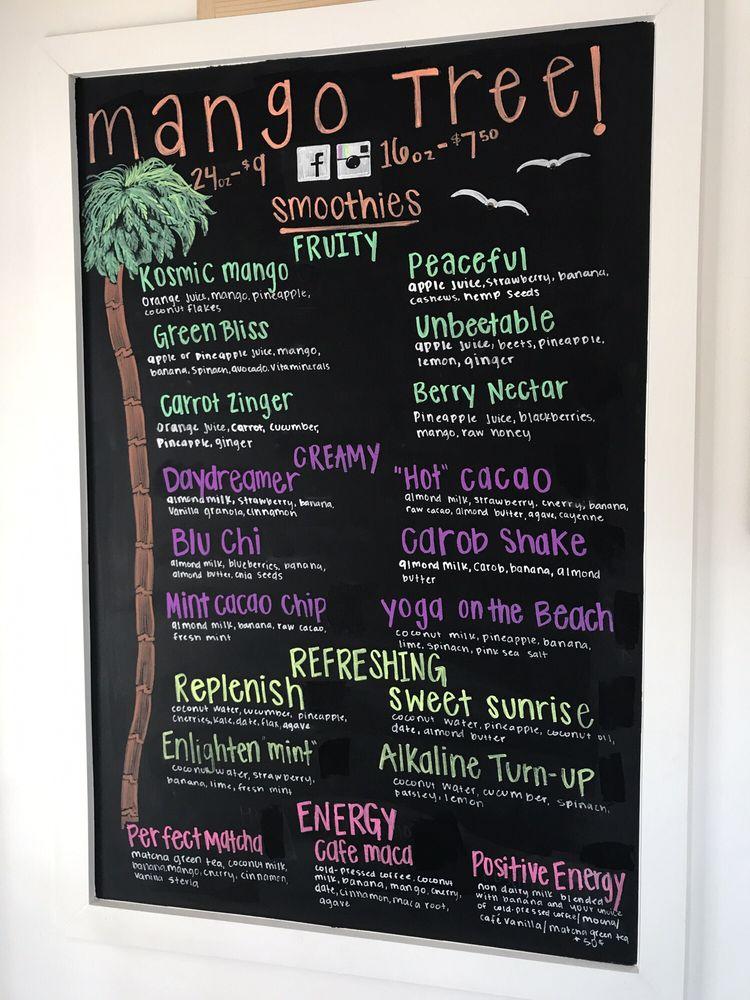 mango Tree!
24oz-$9 f 16oz-$7.50
smoothies
FRUITY
Kosmic mango
Orange juice, mango, pineapple,
coconut flakes
Peaceful
apple juice, strawberry, banana,
cashews, hemp seeds
Green Bliss
apple or pineapple juice, mango,
banana, spinach, avocado, vitaminerals
Unbeetable
apple juice, beets, pineapple,
lemon, ginger
Carrot Zinger
Orange juice, carrot, cucumber,
Pineapple, ginger
Berry Nectar
Pineapple juice, blackberries,
mango, raw honey
CREAMY
Daydreamer
almond milk, strawberry, banana,
vanilla granola, cinnamon
"Hot" cacao
almond milk, strawberry, cherry, banana,
raw cacao, almond butter, agave, cayenne
Blu Chi
almond milk, blueberries, banana,
almond butter, chia seeds
Carob Shake
almond milk, carob, banana, almond
butter
Mint cacao chip
almond milk, banana, raw cacao,
fresh mint
yoga on the Beach
coconut milk, pineapple, banana,
lime, spinach, pink sea salt
REFRESHING
Replenish
coconut water, cucumber, pineapple,
cherries, kale, date, flax, agave
sweet sunrise
coconut water, pineapple, coconut oil,
date, almond butter
Enlighten "mint"
coconut water, strawberry,
banana, lime, fresh mint
Alkaline Turn-up
coconut water, cucumber, spinach,
parsley, lemon
ENERGY
Perfect Matcha
matcha green tea, coconut milk,
banana, mango, cherry, cinnamon,
vanilla stevia
Cafe maca
cold-pressed coffee, coconut
milk, banana, mango, cherry,
date, cinnamon, maca root,
agave
Positive Energy
non dairy milk blended
with banana and your choice
of cold-pressed coffee/mocha/
café vanilla/matcha green tea
+50¢